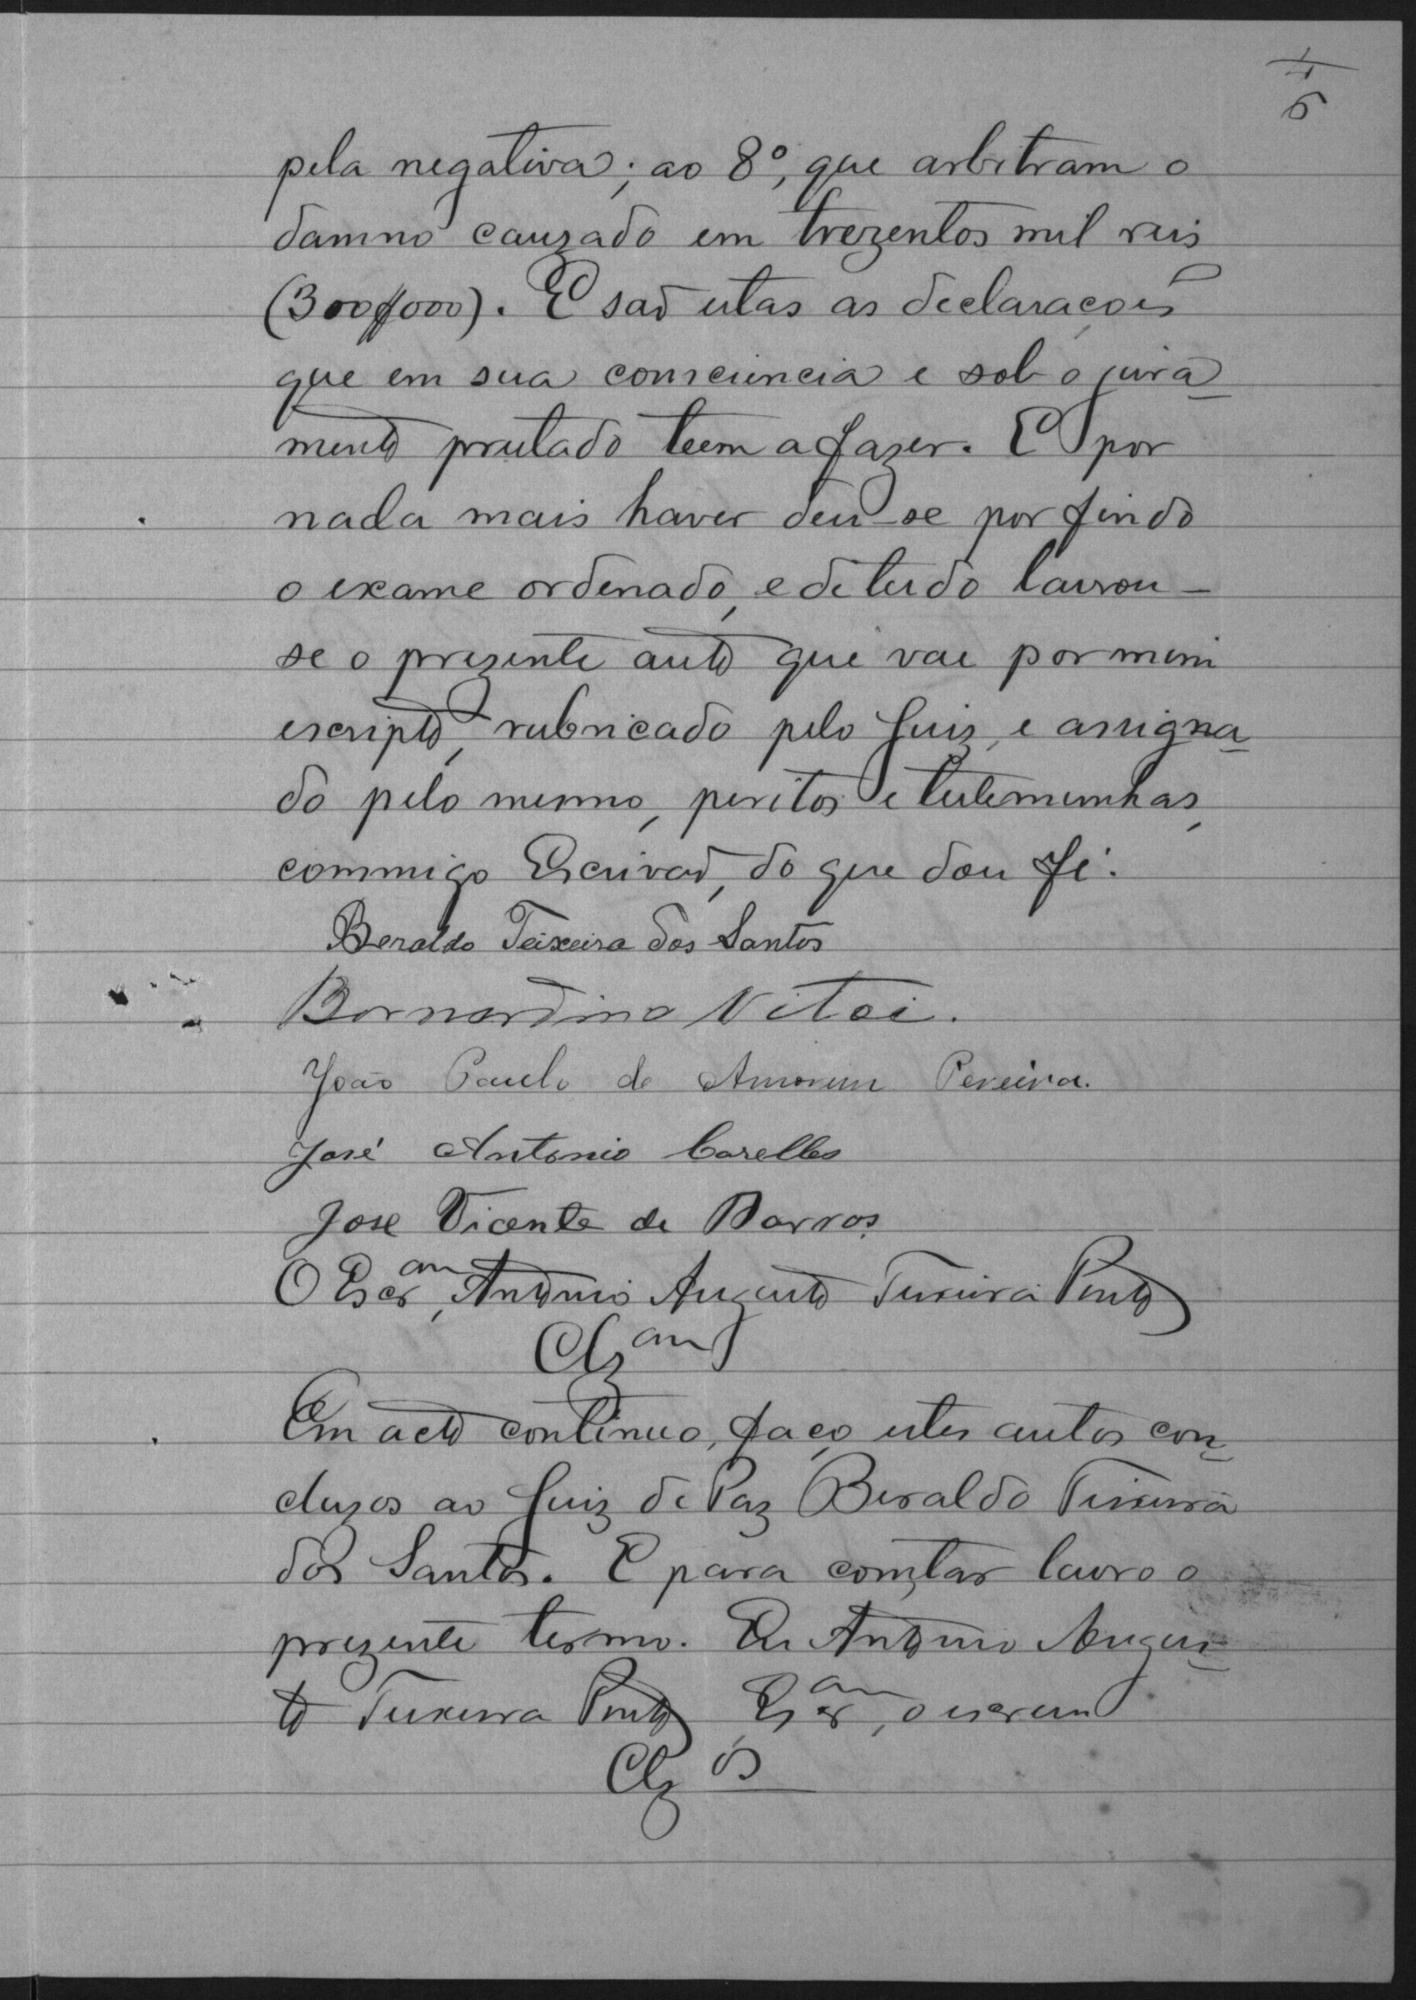 6
pela negativa; ao 8º, que arbitram o
damno cauzado em trezentos mil reis
(300$000). E saõ estas as declaraçoẽs
que em sua consciencia e sob o jura-
mento prestado teem a fazer. E por
nada mais haver deu-se por findo
o exame ordenado, e de tudo lavrou-
se o prezente auto que vae por mim
escripto, rubricado pelo Juiz, e assigna-
do pelo mesmo, peritos e testemunhas,
commigo Escrivaõ, do que dou fé.
Beraldo Teixeira dos Santos
Bernardino Vitoi.
João Paulo de Amorim Pereira.
José Antonio Carelles
Jose Vicente de Barros.
O Escr.am, Antonio Augusto Teixeira Pinto
Clz.am
Em acto continuo, faço estes autos con-
cluzos ao Juiz de Paz Beraldo Teixeira
dos Santos. E para constar lavro o
prezente termo. Eu Antonio Augus-
to Teixeira Pinto, Escr.am, o escrevi
Clz.os